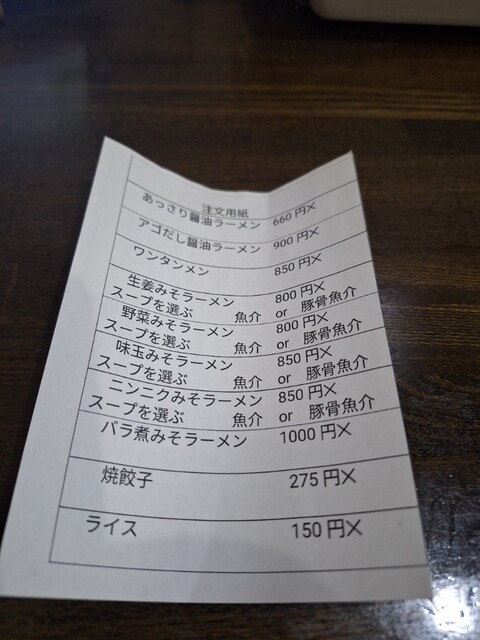 注文用紙
あっさり醤油ラーメン 660円×
アゴだし醤油ラーメン 900円×
ワンタンメン 850円×
生姜みそラーメン 800円×
スープを選ぶ 魚介 or 豚骨魚介
野菜みそラーメン 800円×
スープを選ぶ 魚介 or 豚骨魚介
味玉みそラーメン 850円×
スープを選ぶ 魚介 or 豚骨魚介
ニンニクみそラーメン 850円×
スープを選ぶ 魚介 or 豚骨魚介
バラ煮みそラーメン 1000円×
焼餃子 275円×
ライス 150円×